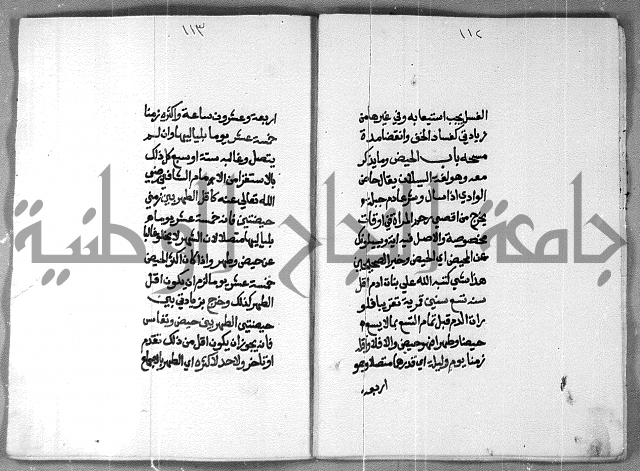 ١١٢
الغسل يجب استيعابه وفي غيرها من
زيادتي كفساد الخف وانقضا مدة
مسحه باب الحيض وما يذكر
معه وهو لغة السيلان يقال حاض
الوادي اذا سال وشرعا دم جبلة
يخرج من اقصى رحم المراة في اوقات
مخصوصة والاصل فيه اية ويسئلونك
عن المحيض اي الحيض وخبر الصحيحين
هذا شي كتبه الله على بنات ادم اقل
سنه تسع سنين قمرية تقريبا فلو
رات الدم قبل تمام التسع بما لا يسع
حيضا وطهرا فهو حيض والا فلا واقله
زمنا يوم وليلة اي قدرهما متصلا وهو
اربعة
١١٣
اربعة وعشرون ساعة واكثره زمنا
خمسة عشر يوما بلياليها وان لم
يتصل وغالبه ستة او سبع كل ذلك
بالاستقرا من الامام الشافعي رضي
الله تعالى عنه كاقل الطهر بين زمني
حيضتين فانه خمسة عشر يوما
بلياليها متصلا لان الشهر لا يخلو غالبا
عن حيض وطهر واذا كان اكثر الحيض
خمسة عشر يوما لزم ان يكون اقل
الطهر كذلك وخرج بزيادتي بين
حيضتين الطهر بين حيض ونفاس
فانه يجوز ان يكون اقل من ذلك تقدم
او تاخر ولا حد لاكثره اي الطهر بالاجماع
جامعة النجاح الوطنية